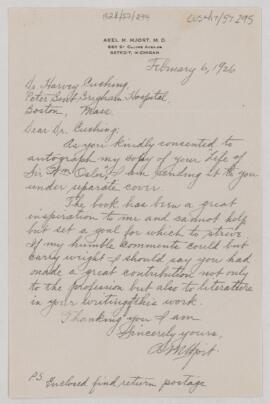 1928/57/294
CUSH/7/57.295
AXEL M. HJORT, M. D.
St Clair Avenue
DETROIT, MICHIGAN
February 6, 1926
Dr. Harvey Cushing
Peter Bent Brigham Hospital,
Boston, Mass.
Dear Dr. Cushing:
As you kindly consented to
autograph my copy of your Life of
Sir Wm Osler, I am sending it to you
under separate cover.
The book has been a great
inspiration to me and cannot help
but set a goal for which to strive.
If my humble comments could but
carry weight I should say you had
made a great contribution not only
to the profession but also to literature
in your writing this work.
Thanking you I am
Sincerely yours,
A M Hjort
P.S. Enclosed find return postage